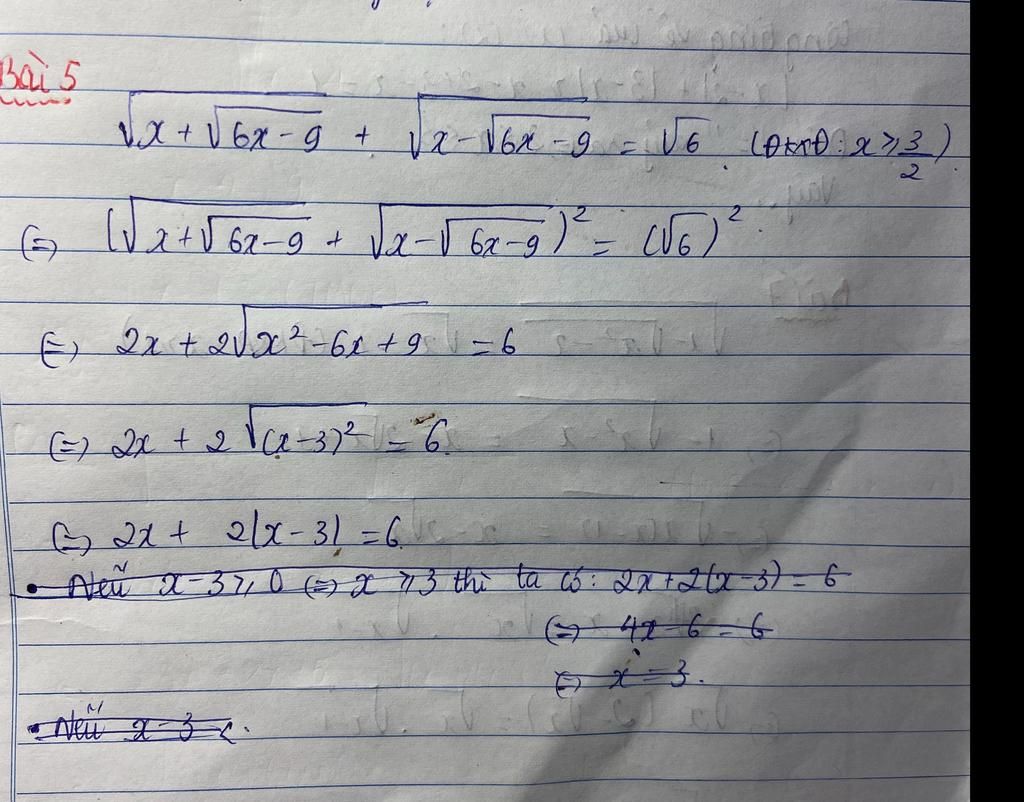 Bài 5
√(x + √(6x - 9)) + √(x - √(6x - 9)) = √6 (ĐKXĐ: x ≥ 3/2)
(=) (√(x + √(6x - 9)) + √(x - √(6x - 9)))² = (√6)².
(=) 2x + 2√(x² - 6x + 9) = 6
(=) 2x + 2√((x - 3)²) = 6.
(=) 2x + 2|x - 3| = 6.
• Nếu x - 3 ≥ 0 (=) x ≥ 3 thì ta có: 2x + 2(x - 3) = 6
(=) 4x - 6 = 6
(=) x = 3.
• Nếu x - 3 <.